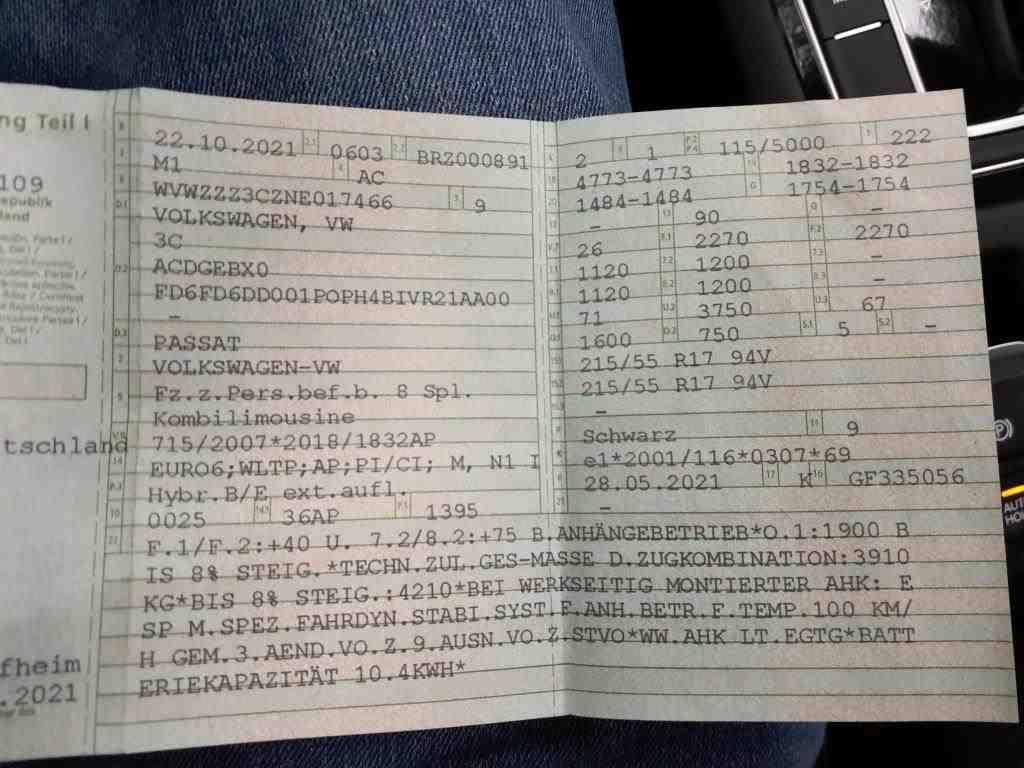 ng Teil I
109
epublik
land
tschland
fheim
.2021
B 22.10.2021 2.1 0603 2.2 BRZ000891
J M1 4 AC
E WVWZZZ3CZNE017466 3 9
D.1 VOLKSWAGEN, VW
3C
D.2 ACDGEBX0
FD6FD6DD001POPH4BIVR21AA00
–
D.3 PASSAT
2 VOLKSWAGEN-VW
5 Fz.z.Pers.bef.b. 8 Spl.
Kombilimousine
V.9 715/2007*2018/1832AP
14 EURO6;WLTP;AP;PI/CI; M, N1 I
P.3 Hybr.B/E ext.aufl.
10 0025 14.1 36AP P.1 1395
L 2 9 1 P.2 P.4 115/5000 T 222
18 4773-4773 19 1832-1832
20 1484-1484 G 1754-1754
12 – 13 90 Q –
V.7 26 F.1 2270 F.2 2270
7.1 1120 7.2 1200 7.3 –
8.1 1120 8.2 1200 8.3 –
U.1 71 U.2 3750 U.3 67
O.1 1600 O.2 750 S.1 5 S.2 –
15.1 215/55 R17 94V
15.2 215/55 R17 94V
15.3 –
R Schwarz 11 9
K e1*2001/116*0307*69
6 28.05.2021 17 K 16 GF335056
21 –
22 F.1/F.2:+40 U. 7.2/8.2:+75 B.ANHÄNGEBETRIEB*O.1:1900 B
IS 8% STEIG.*TECHN.ZUL.GES-MASSE D.ZUGKOMBINATION:3910
KG*BIS 8% STEIG.:4210*BEI WERKSEITIG MONTIERTER AHK: E
SP M.SPEZ.FAHRDYN.STABI.SYST.F.ANH.BETR.F.TEMP.100 KM/
H GEM.3.AEND.VO.Z.9.AUSN.VO.Z.STVO*WW.AHK LT.EGTG*BATT
ERIEKAPAZITÄT 10.4KWH*
AUT
HO